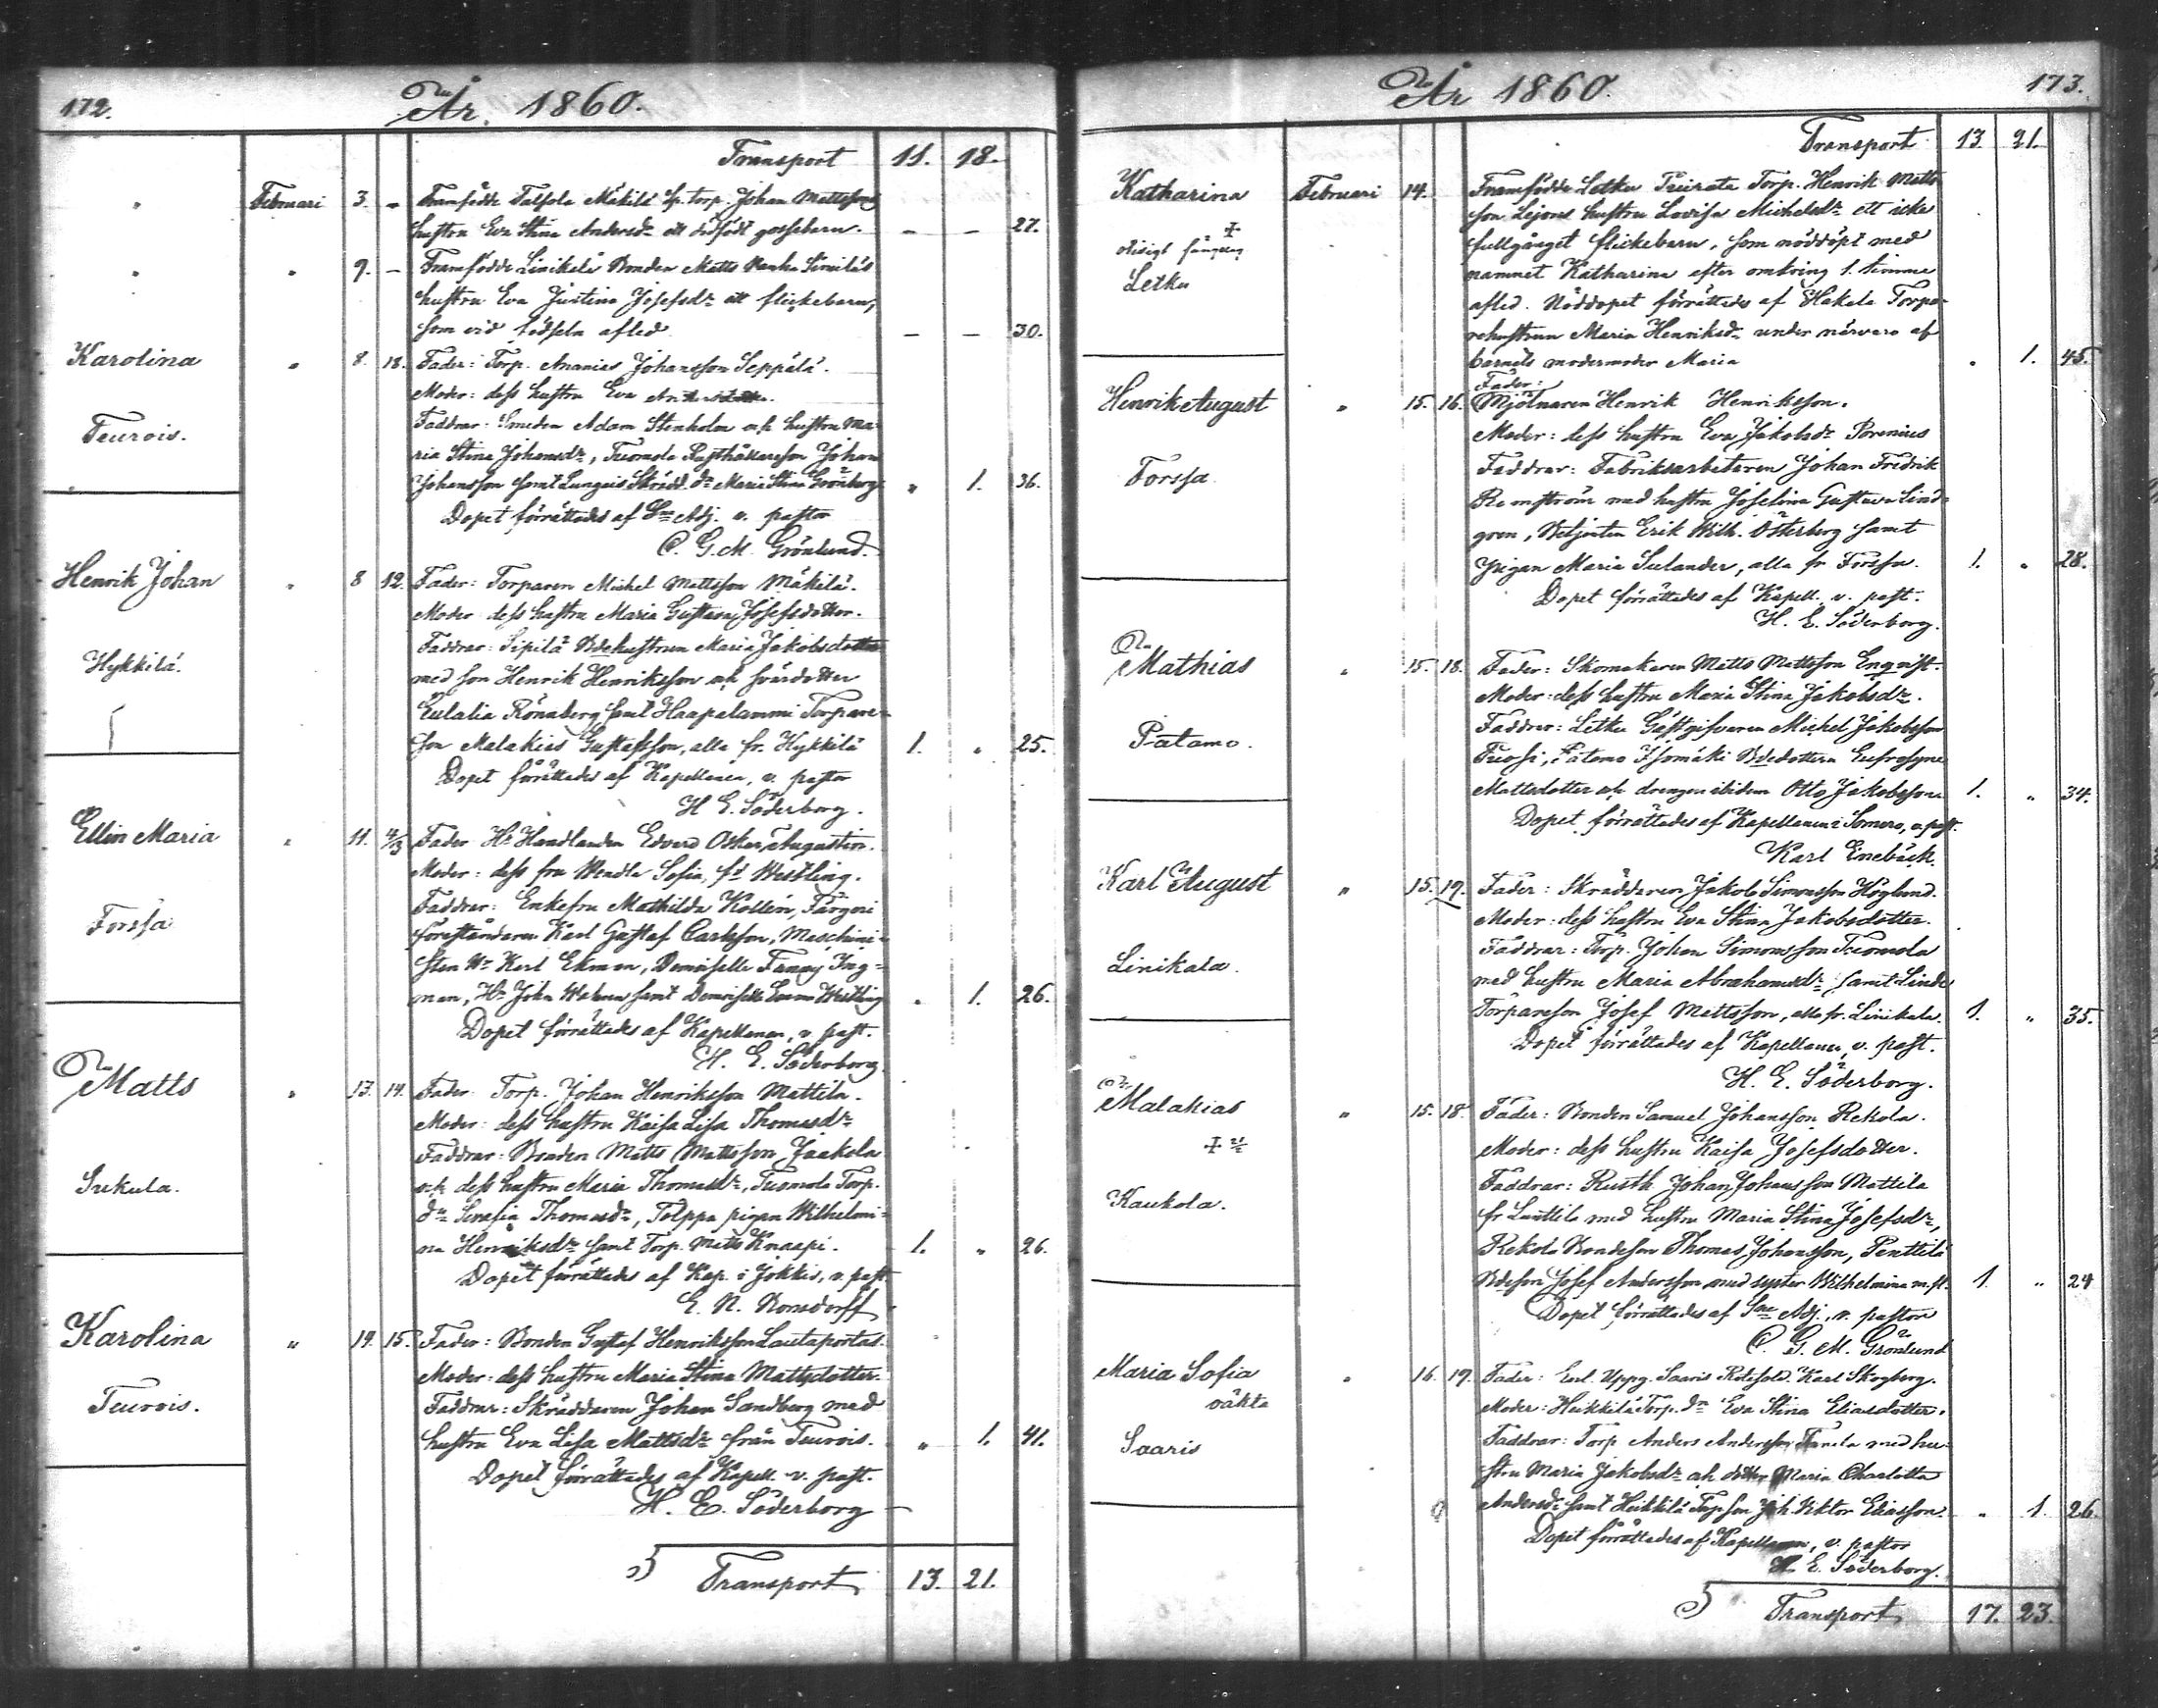 172.
År 1860.
Transport 11. 18.
" Februari 3. " Framfödde Talsola Mäkilä sp. torp. Johan Mattssons
hustru Eva Stina Andersdr ett dödfödt gossebarn. — — 27.
" " 9. — Framfödde Linikala Bonden Matts Vanha
hustru Eva Justina Josefsdr ett flickebarn,
som vid födseln afled. — — 30.
Karolina " 8. 18. Fader: Torp. Ananias Johansson Seppälä.
Moder: dess hustru Eva
Teurois. Faddrar: Smeden Adam Stenholm och hustru Ma-
ria Stina Johansdr, Tuomola Rusthållareson Johan
Johansson samt Lungois Skrädd. dr Maria Stina Grönberg " 1. 36.
Dopet förrättades af Sne Adj. v. pastor
C. G. M. Grönlund.
Henrik Johan " 8 12. Fader: Torparen Michel Mattsson Mäkilä.
Moder: dess hustru Maria Gustava Josefsdotter.
Hykkilä. Faddrar: Sipilä Bdehustrun Maria Jakobsdotter
med son Henrik Henriksson och svärdotter
Eulalia Rönnberg samt Haapalammi Torpare-
son Malakias Gustafsson, alla fr. Hykkilä 1. " 25.
Dopet förrättades af Kapellanen, v. pastor
H E. Söderborg.
Ellin Maria " 11. 4/3 Fader Hr Handlanden Edvard Oskar Augustin.
Moder: dess fru Wendla Sofia, fd Westling.
Forssa Faddrar: Enkefru Mathilda Kollén, Färgeri
föreståndaren Karl Gustaf Carlsson, Maschini-
sten Hr Karl Ekman, Demoiselle Fanny Ing-
man, Hr John Wahren samt Demoiselle Emma Westling " 1. 26.
Dopet förrättades af Kapellanen, v. past.
H. E. Söderborg.
Matts " 13. 14. Fader: Torp. Johan Henriksson Mattila.
Moder: dess hustru Kaisa Lisa Thomasdr
Faddrar: Bonden Matts Mattsson Jaakola
Sukula. och dess hustru Maria Thomasdr, Tuomola Torp.
dr Serafia Thomasdr, Tolppa pigan Wilhelmi-
na Henriksdr samt Torp. Matts Knaapi. 1. " 26.
Dopet förrättades af Kap. i Jokkis, v. past.
E. N. Bonsdorff
Karolina " 14. 15. Fader: Bonden Gustaf Henriksson Lautaportas.
Moder: dess hustru Maria Stina Mattsdotter.
Teurois. Faddrar: Skräddaren Johan Sandberg med
hustru Eva Lisa Mattsdr från Teurois. " 1. 41.
Dopet förrättades af Kapell. v. past.
H. E. Söderborg
Transport 13. 21.
År 1860.
173.
Transport 13 21.
Katharina Februari 14. Framfödde Letku Torp. Henrik Matts-
son Lejons hustru Lovisa Michelsdr ett icke
fullgånget flickebarn, som nöddöpt med
Letku namnet Katharina efter omkring 1. timme
afled. Nöddopet förrättades af Hakala Torpa-
rehustrun Maria Henriksdr under närvaro af
barnets modermoder Maria " 1. 45.
Henrik August " 15. 16. Fader: Mjölnaren Henrik Henriksson.
Moder: dess hustru Eva Jakobsdr Porenius
Forssa Faddrar: Fabriksarbetaren Johan Fredrik
Remström med hustru Josefina Gustava Lind-
gren, Betjenten Erik Wilh. Österberg samt
Pigan Maria Selander, alla fr Forssa. 1. " 28.
Dopet förrättades af Kapell. v. past.
H. E. Söderborg.
Mathias " 15. 18. Fader: Skomakaren Matts Mattsson Enqvist.
Moder: dess hustru Maria Stina Jakobsdr.
Patamo. Faddrar: Letku Gästgifvaren Michel Jakobsson
Tuosi, Patamo Isomäki Bdedottern Eufrosyne
Mattsdotter och drengen ibidem Otto Jakobsson 1. " 34.
Dopet förrättades af Kapellanen i Somero, v. past.
Karl Enebäck.
Karl August " 15. 19. Fader: Skräddaren Jakob Simonsson Höglund.
Moder: dess hustru Eva Stina Jakobsdotter.
Linikala. Faddrar: Torp. Johan Simonsson Tuomola
med hustru Maria Abrahamsdr samt Linda
Torpareson Josef Mattsson, alla fr. Linikala. 1. " 35.
Dopet förrättades af Kapellanen, v. past.
H. E. Söderborg.
Malakias " 15. 18. Fader: Bonden Samuel Johansson Rekola.
Moder: dess hustru Kaisa Josefsdotter.
Kaukola. Faddrar: Rusth. Johan Johansson Mattila
fr Lunttila med hustru Maria Stina Josefsdr,
Rekola Bondeson Thomas Johansson, Penttilä
Bdeson Josef Andersson med syster Wilhelmina m. fl. 1. " 24
Dopet förrättades af Sne Adj., v. pastor
C. G. M. Grönlund
Maria Sofia " 16. 19. Fader: Enl. uppg. Saaris Karl Skogberg.
oäkta Moder: Heikkilä Torp. dr Eva Stina Eliasdotter.
Saaris Faddrar: Torp Anders Andersson med hu-
stru Maria Jakobsdr och dotter Maria Charlotta
Andersdr samt Heikkilä Torpson Joh. Viktor Eliasson. " 1. 26.
Dopet förrättades af Kapellanen, v. pastor
H. E. Söderborg.
Transport 17. 23.